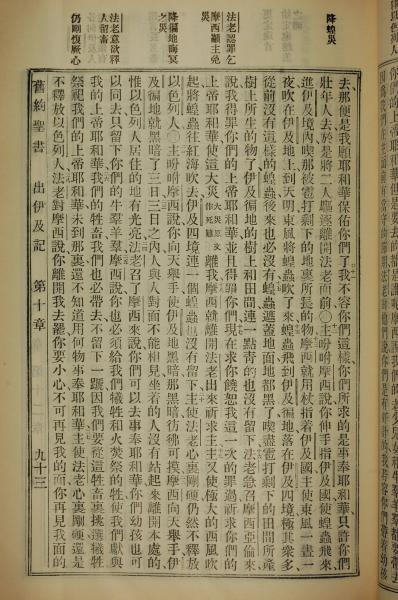 降蝗災
法老認罪乞
摩西籲主免
災
降徧地晦冥
之災
法老意欲釋
人留畜
仍剛愎厥心
去那便是我願耶和華保佑你們了我不容你們這樣你們所求的是事奉耶和華只許你們
壯年人去於是將二人驅逐離開法老面前○主吩咐摩西說你伸手指伊及國使蝗蟲飛來
進伊及境內喫那被雹打剩下的地裏所長的物摩西就用杖指着伊及國主使東風一晝一
夜吹在伊及地上到天明東風將蝗蟲吹了來蝗蟲飛到伊及徧地落在伊及四境極其衆多
從前沒有這樣的蝗蟲後來也必沒有蝗蟲遮蓋地面地都黑了喫盡雹打剩下的田間所產
樹上所作的物了伊及徧地的樹上和田間連一點青的也沒有留下法老急召摩西亞倫來
說我得罪你們的上帝耶和華並且得罪你們現在求你饒恕我這一次的罪過祈求你們的
上帝耶和華使這大災大災原文作死離離我摩西就離開法老出來祈求主主又使極大的西風吹
起將蝗蟲吹往紅海吹去伊及四境連一個蝗蟲也沒有留下主使法老心裏剛硬仍然不釋放
以色列人○主吩咐摩西說你向天舉手使伊及地黑暗那黑暗彷彿可摸摩西向天舉手伊
及徧地就黑暗了三日三日之內人與人對面不能相見坐着的人沒有站起來離開本處的
惟以色列人居住的地有光亮法老召了摩西來說你們可以去事奉耶和華你們幼孩也可
以同去只留下你們的牛羣羊羣摩西說你也必須給我們犧牲和火焚祭的牲使我們獻與
我的上帝耶和華我們的牲畜我們也必帶去不留下一蹏因我們要從這牲畜裏挑選犧牲
祭祀我們的上帝耶和華未到那裏還不知道用何物事奉耶和華主使法老心裏剛硬還是
不釋放以色列人法老對摩西說你離開我去罷你要小心不可再見我的面你再見我面的
舊約聖書 出伊及記 第十章 九十三